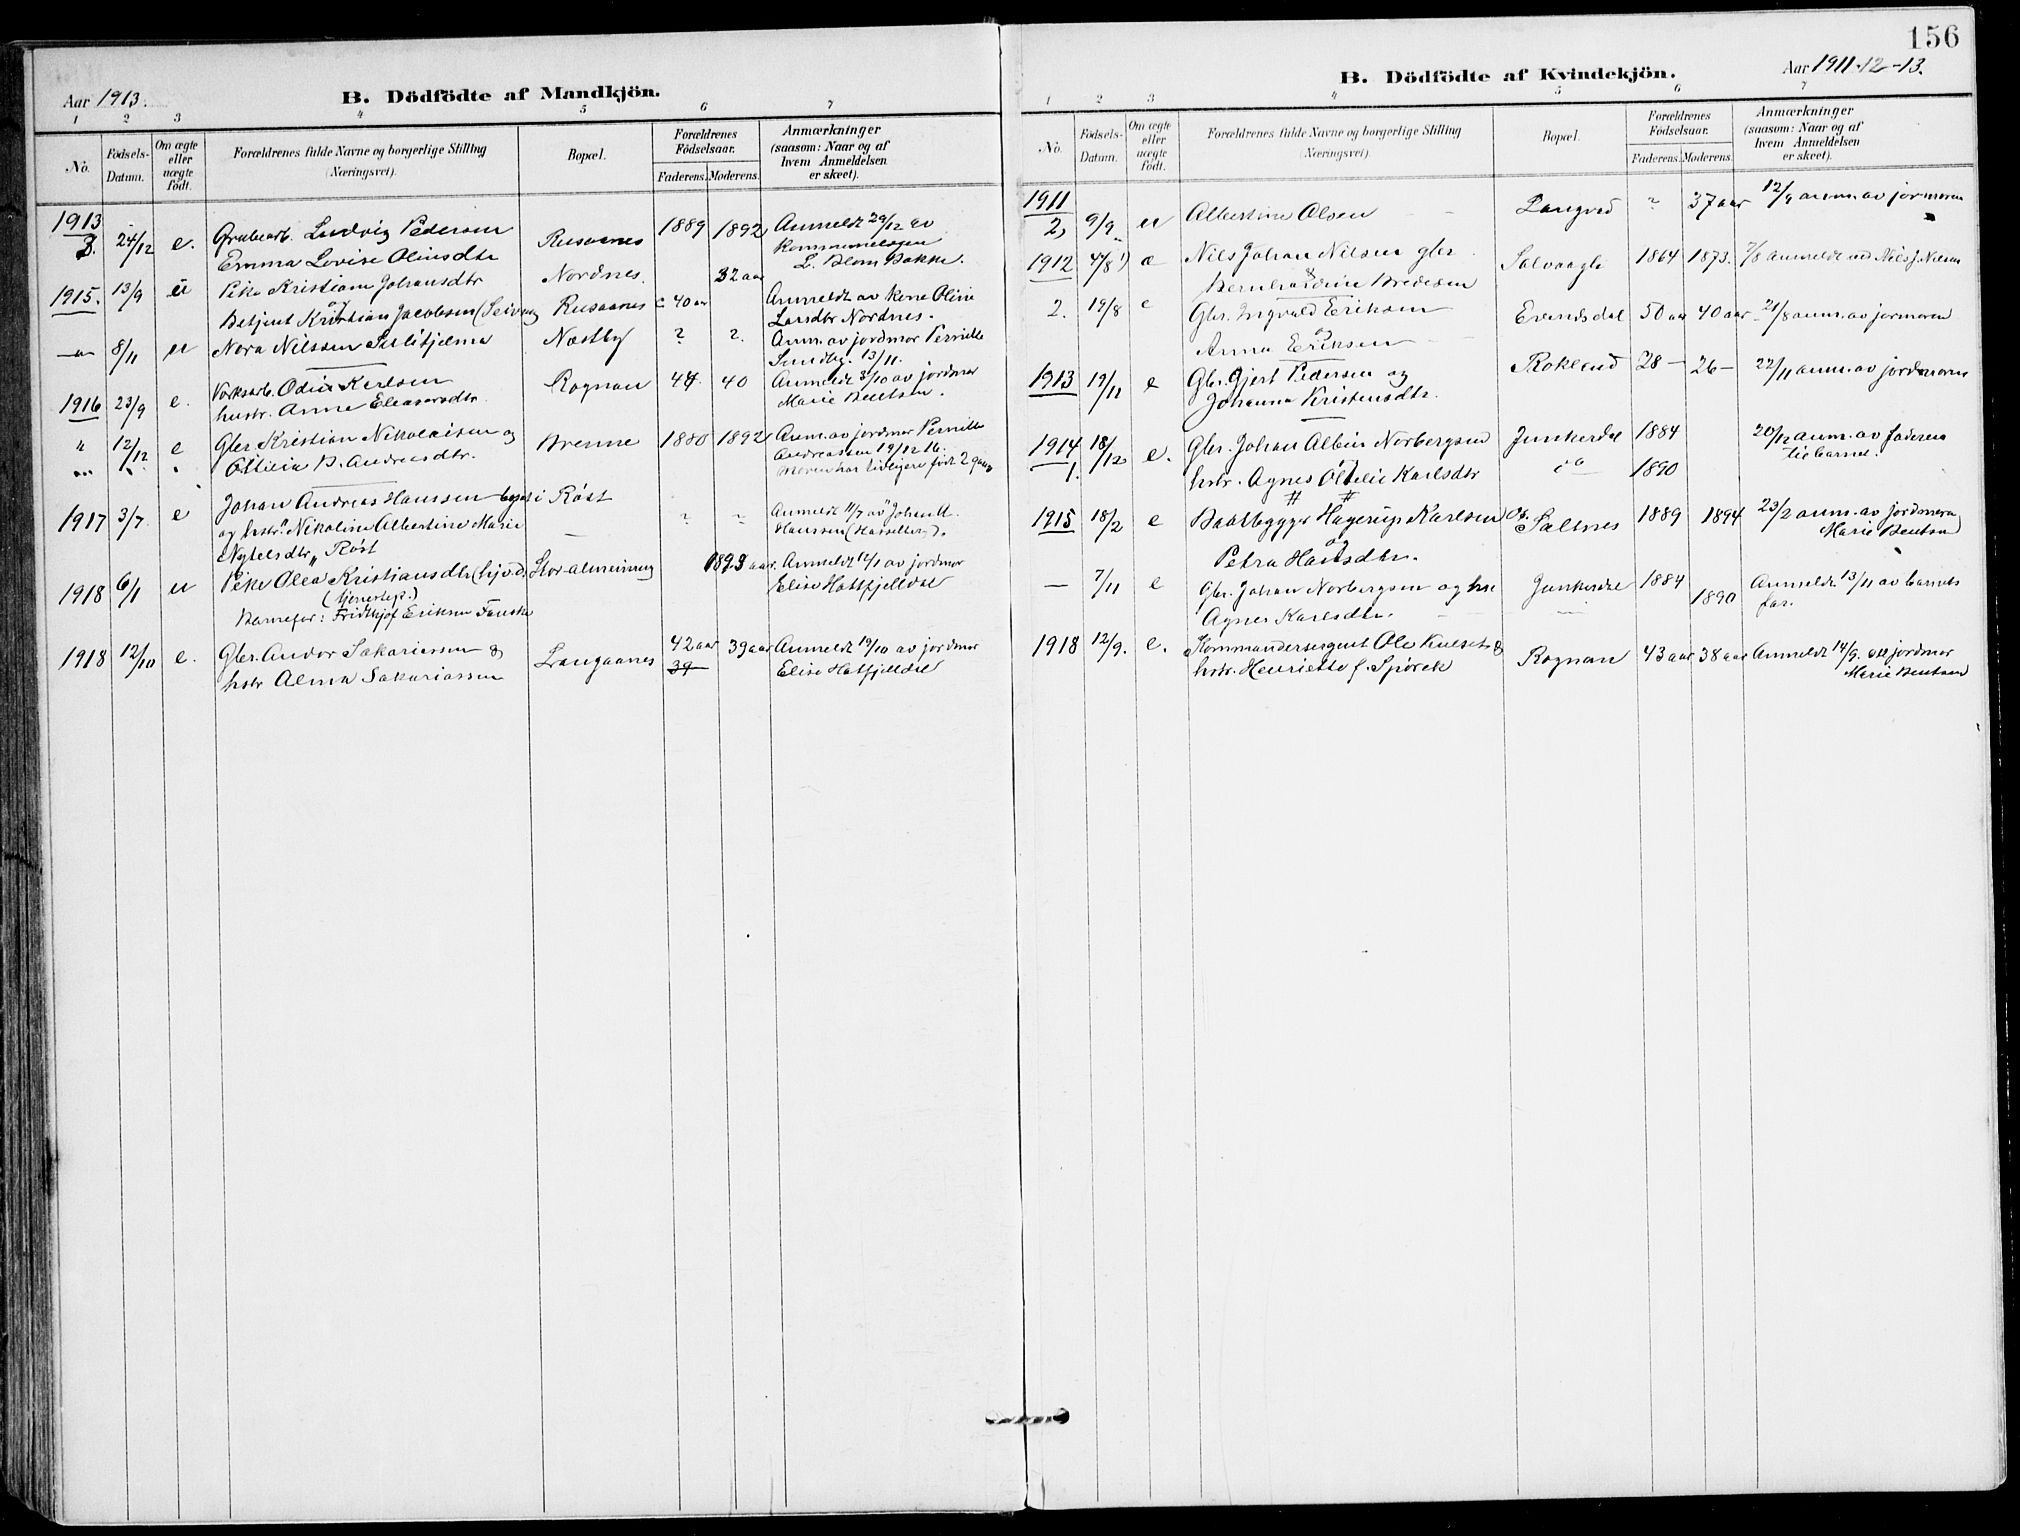 Aar 1913.
B. Dödfödte af Mandkjön.
1 2 3 4 5 6 7
No. Födsels-Datum. Om ægte eller uægte födt. Forældrenes fulde Navne og borgerlige Stilling (Næringsvei). Bopæl. Forældrenes Födselsaar. Faderens. Moderens. Anmærkninger (saasom: Naar og af hvem Anmeldelsen er skeet).
1913
3. 24/12 e. Grubearb. Ludvig Pedersen 1889 1892 Anmeldt 29/12 av
Emma Lovise Olinsdtr Rusaanes
L. Blom Bakke.
1915. 13/9 u Pike Kristiane Johansdtr Nordnes. 32 aar
Betjent Kristian Jacobsen Rusaanes 40 aar Anmeldt av kone Oline
Larsdtr Nordnes.
8/11 u Nora Nilssen Sulitjelma Næstby ? ? Anm. av jordmor Pernille
Sundby. 13/11.
1916 23/9 e. Verksarb. Odin Karlsen Rognan 44 40 Anmeldt 3/10 av jordmor
hustr. Anna Eleasersdtr. Marie Bentsen.
" 12/12 e Gbr. Kristian Nikolaisen og Brenne 1880 1892 Anm. av jordmor Pernille
Ottilia B. Andreasdtr. Andreassen 19/12 16.
Moren har tidligere født 2 gang
1917 3/7. e Johan Andreas Hanssen bosat i Røst ? ? Anmeldt 11/7 av Johan A.
og hstr. Nikoline Albertine Marie Hanssen (Hasselberg).
Nytelsdtr " Røst
1918 6/1 u Pike Olea Kristiansdtr Stor-almenning 1893 Anmeldt 12/1 av jordmor
(tjenestep.) Elise Hattfjelldal
Barnefar: Fridthjof Eriksen Fauske
1918 12/10 e. Gbr. Andor Sakariassen & Langaanes 42 aar 39 aar Anmeldt 19/10 av jordmor
hstr Alma Sakariassen 39 Elise Hattfjelldal
156
Aar 1911-12-13.
B. Dödfödte af Kvindekjön.
1 2 3 4 5 6 7
No. Födsels-Datum. Om ægte eller uægte födt. Forældrenes fulde Navne og borgerlige Stilling (Næringsvei). Bopæl. Forældrenes Födselsaar. Faderens. Moderens. Anmærkninger (saasom: Naar og af hvem Anmeldelsen er skeet).
1911
2, 9/9 u Albertine Olsen ? 37 aar 12/9 anm. av jormoren
1912 4/8 æ Nils Johan Nilsen gbr Solvaagli 1864 1873. 7/8 anmeldt ved Nils J. Nilsen
& Bernhardine Bredesen
2. 19/8 e Gbr. Ingvald Eriksen Evensdal 50 aar 40 aar 21/8 anm. av jormoren
og
Anna Eriksen
1913 19/11 e Gbr. Gjert Pedersen og Rokland 28 - 26 - 22/11 anm. av jordmoren
Johanna Kristensdtr.
1914 18/12 e. Gbr. Johan Albin Norbergsen Junkerdal 1884 20/12 anm. av faderen
1. hstr. Agnes Ottilie Karlsdtr do 1890 til barnet.
1915 18/2 e Baatbygger Hagerup Karlsen og Saltnes 1889 1894 23/2 anm. av jordmora
Petra Hansdtr. Marie Bentsen
— 7/11 e Gbr. Johan Norbergsen og hu. Junkerdal 1884 1890 Anmeldt 13/11 av barnets
Agnes Karlsdtr. far.
1918 12/9. e. Kommandersergent Ole &
hstr. Henriette f. Spørck Rognan 43 aar 38 aar Anmeldt 14/9. av jordmor
Marie Bentsen